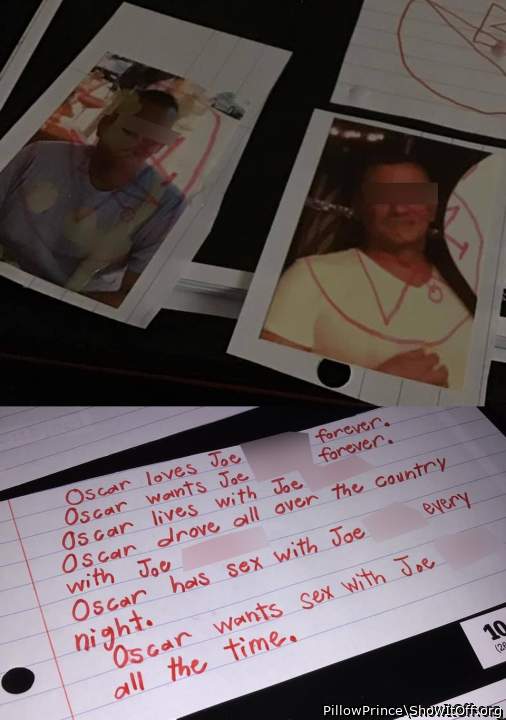 Oscar loves Joe forever.
Oscar wants Joe forever.
Oscar lives with Joe
Oscar drove all over the country
with Joe
Oscar has sex with Joe every
night.
Oscar wants sex with Joe
all the time.
10
PillowPrince\ShowItOff.org